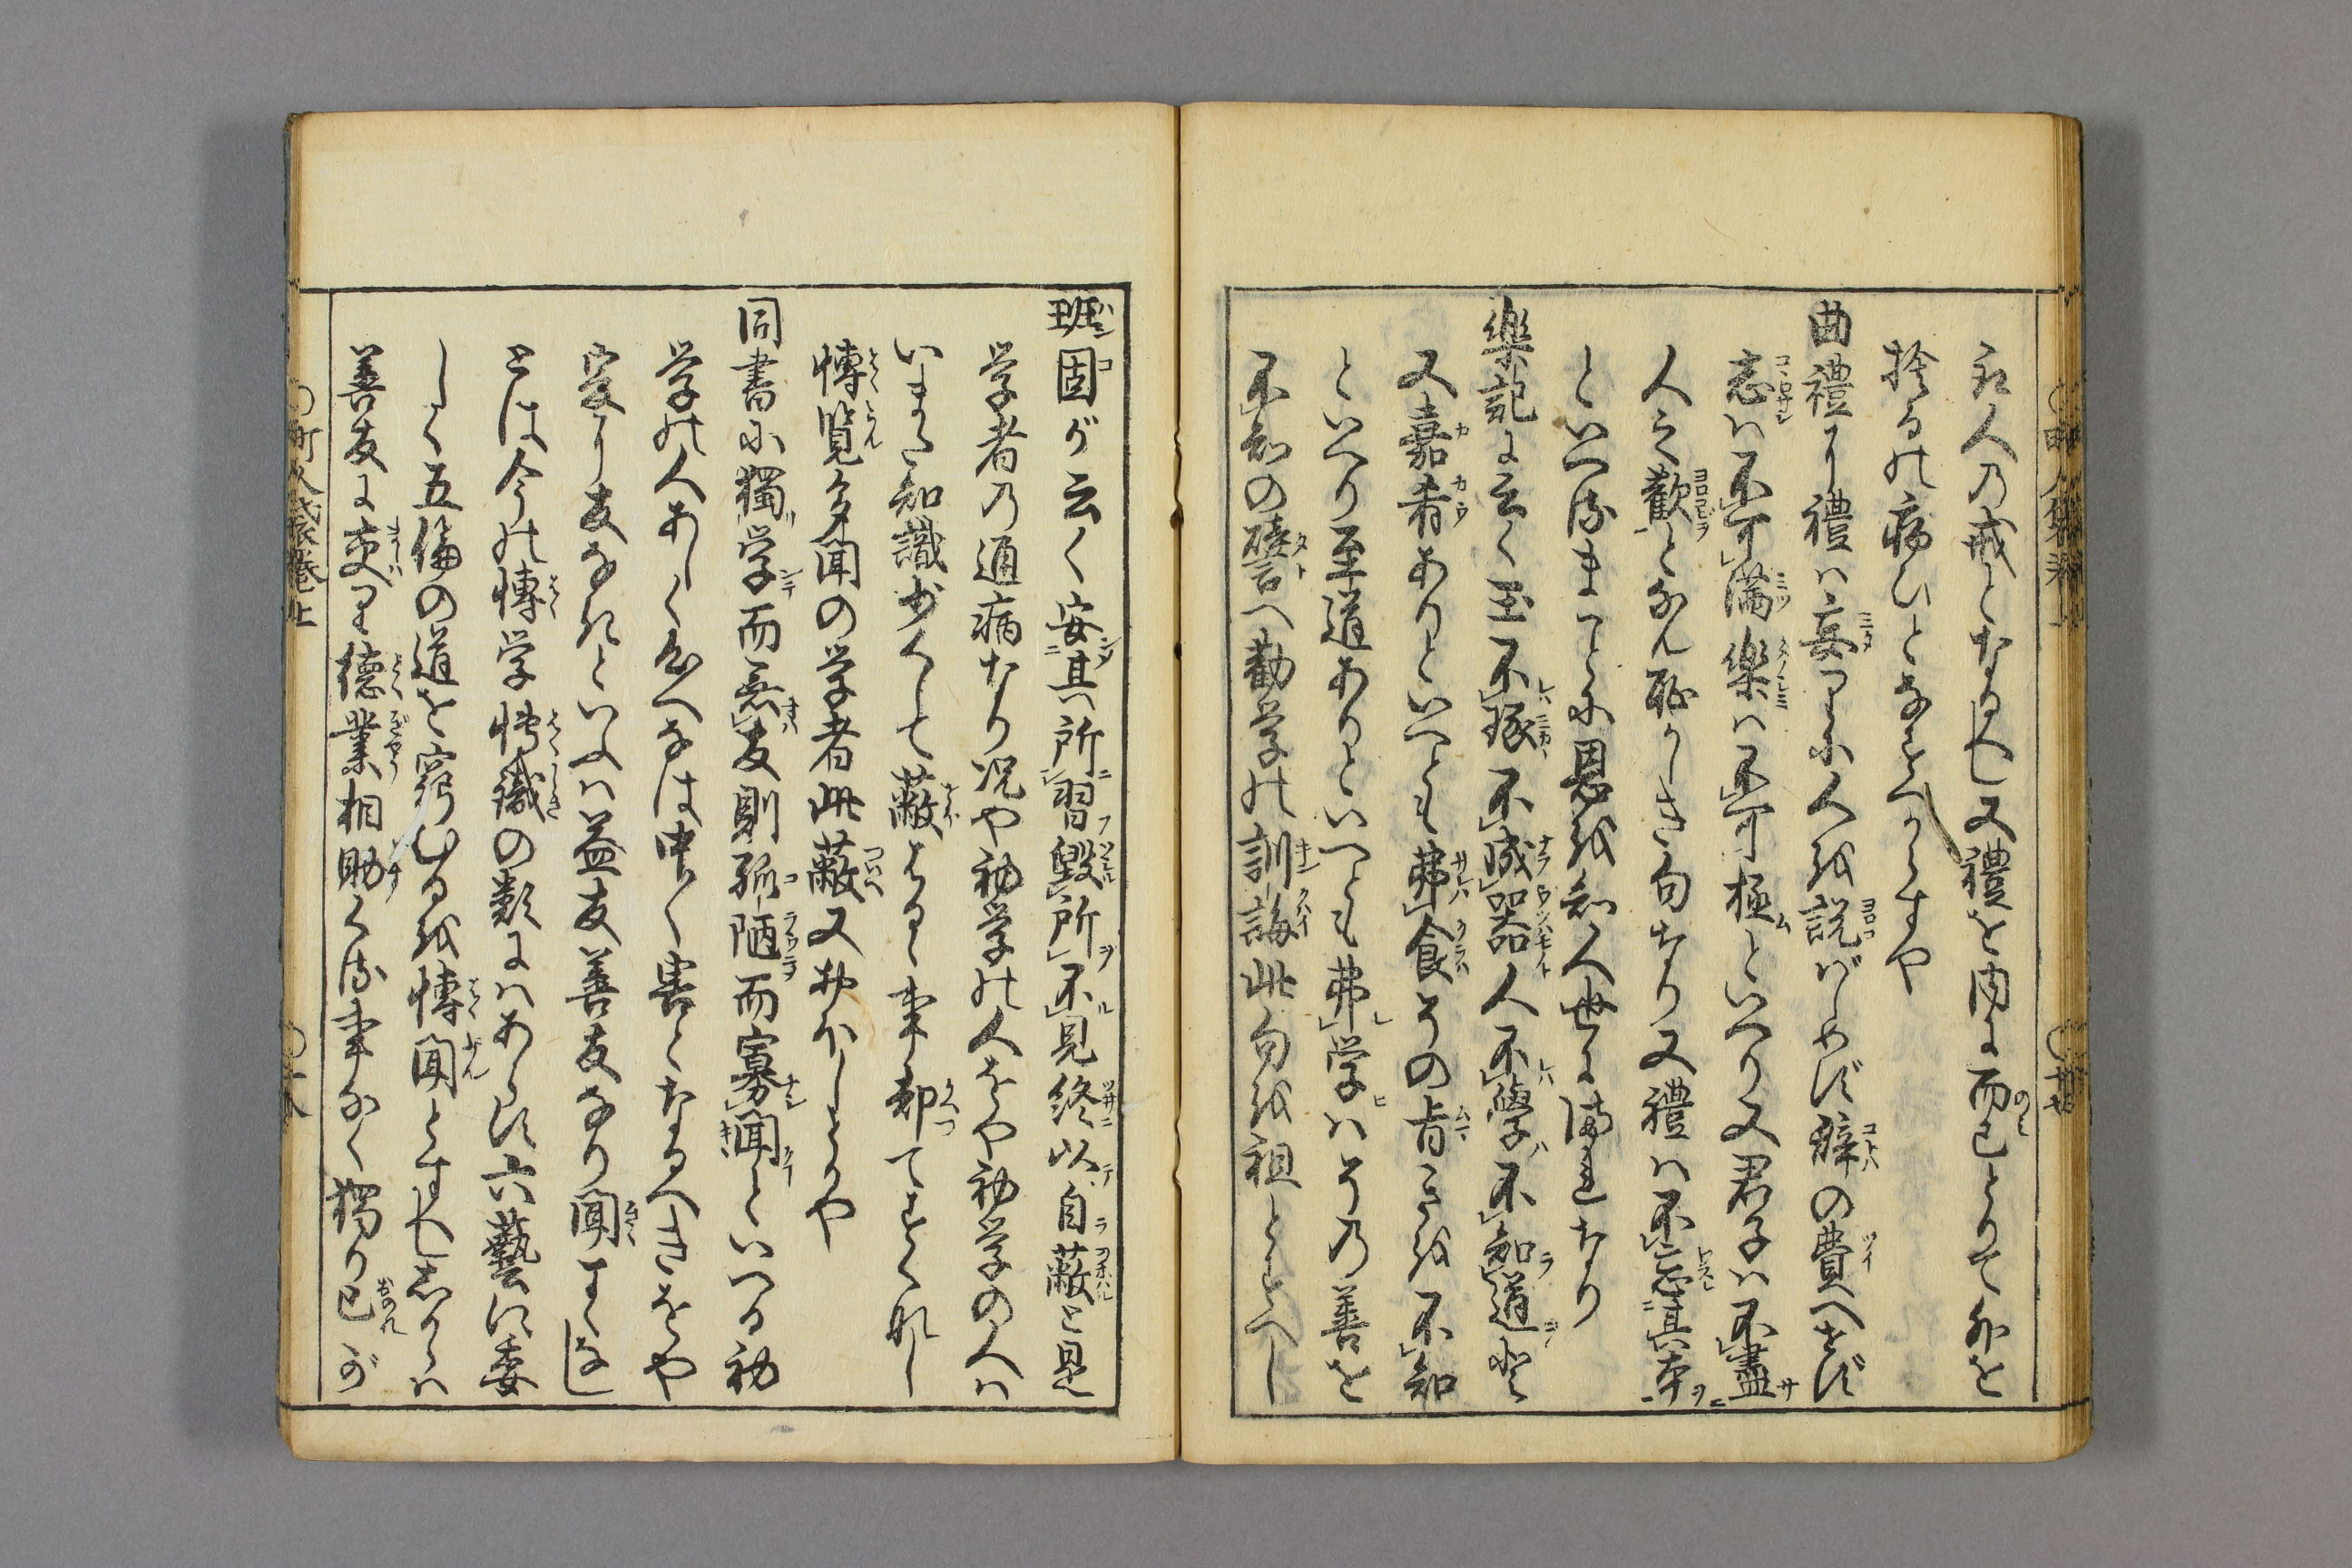 示人乃戒となるへし又禮を内に而已とりて外を
捨るは病ひとなをへからすや
曲禮に禮ハ妄りに人を説ばしめず辞の費へせず
志ハ不可満樂ハ不可極といへり又君子ハ不盡
人之歡となん恥かしき句なり又禮ハ不忘其本
といへはまことに恩を知人世に満れなり
樂記に云く玉不琢不成器人不學不知道と
又嘉肴ありといへとも弗食その旨きを不知
といへり至道ありといへとも弗学ハその善を
不知の譬へ勸学の訓誨此句を祖とすへし
班固が云く安其所習毀所不見終以自蔽と是
学者の通病なり况や初学の人をや初学の人ハ
いまた知識少くして蔽はるゝ事却てすくなし
博覧多聞の学者此蔽又おほしとかや
同書に獨学而無友則孤陋而寡聞といへる初
学の人あしく心へなは中〱害となるへきをや
友なれといふハ益友善友なり聞まくほし
とは今の博学博識の類にハあらす六藝に委
しく五倫の道を窮むるを博聞とすへししからハ
善友に交り德業相助くは事なく獨り己が
町人袋巻上